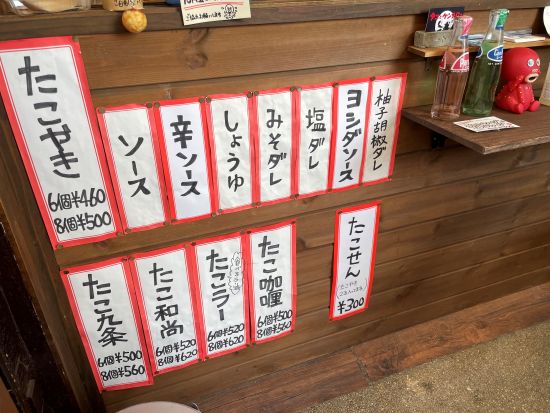 たこやき
6個¥460
8個¥500
ソース
辛ソース
しょうゆ
みそダレ
塩ダレ
ヨシダソース
柚子胡椒ダレ
たこ九条
6個¥500
8個¥560
たこ和尚
6個¥520
8個¥620
たこラー
6個¥520
8個¥620
たこ咖喱
6個¥500
8個¥560
たこせん
¥300